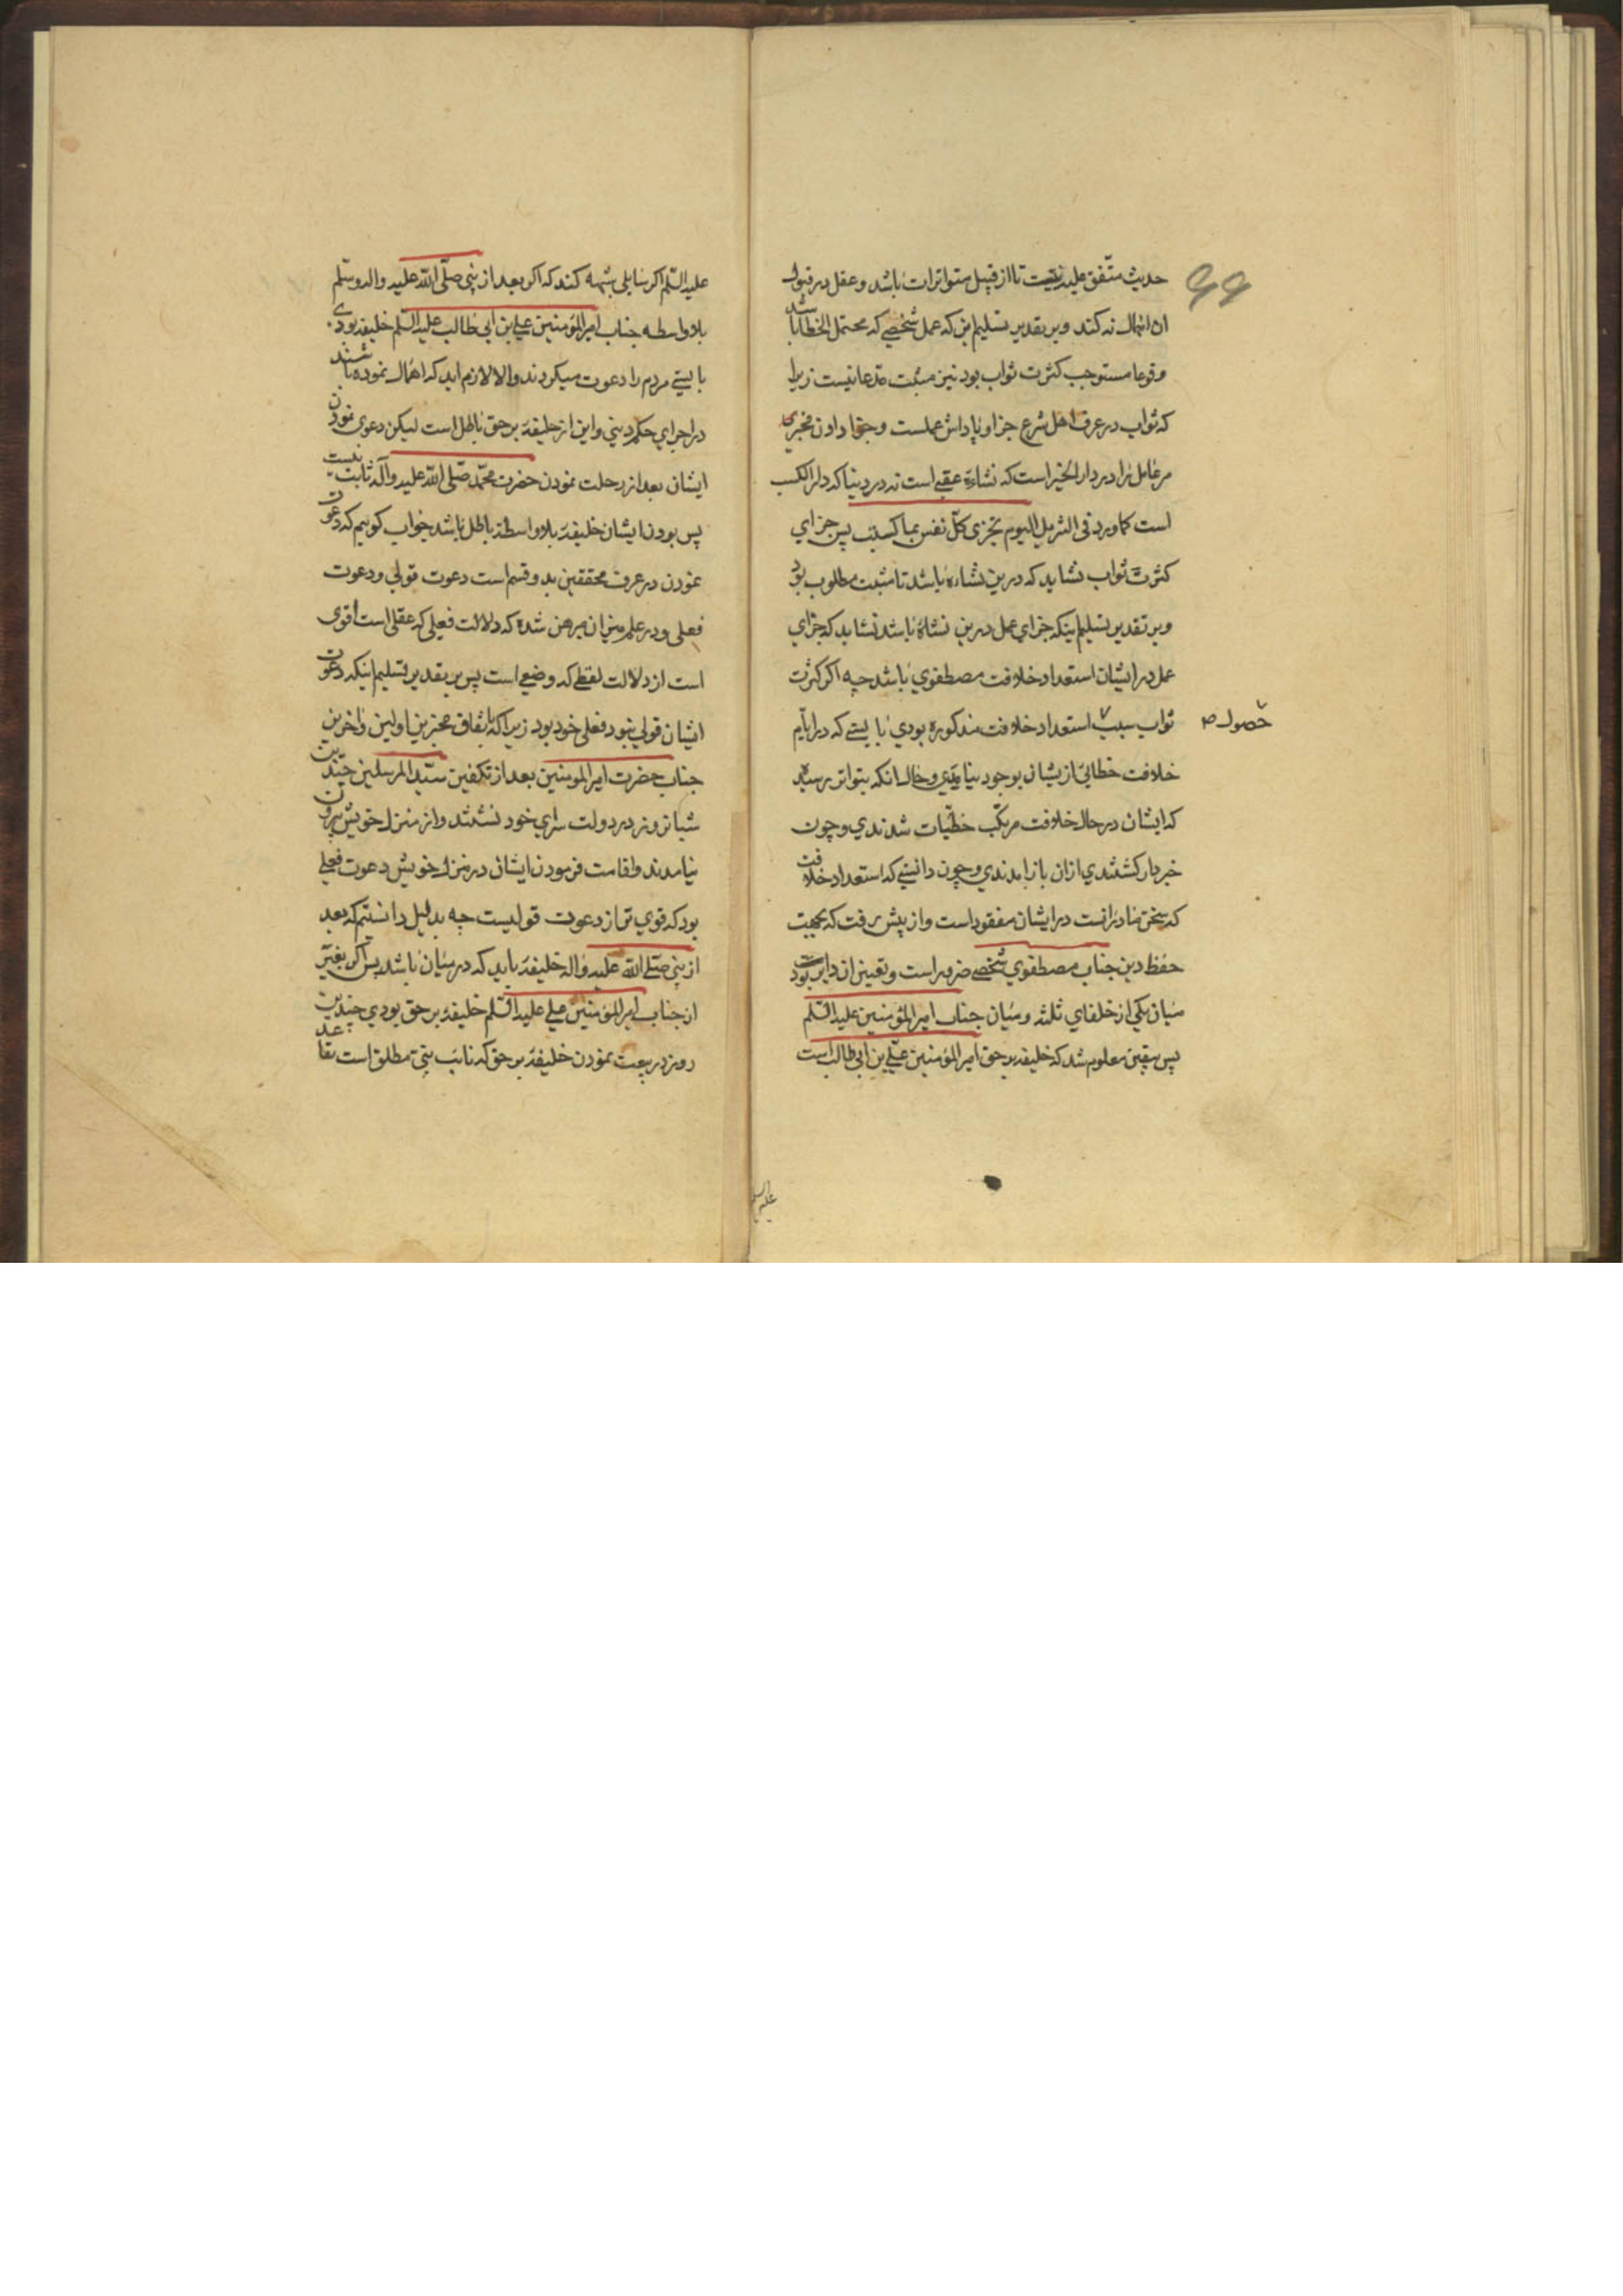 حدیث متفق علیه نیست تا از قبیل متواترات باشد و عقل در قبول
ان اهمال نه کند و بر تقدیر تسلیم این که عمل شخصی که محتمل الخطا باشد
وقوعا مستوجب کثرت ثواب بود نیز مثبت مدعا نیست زیرا
که ثواب در عرف اهل شرع جزا و پاداش عملست و جزا دادن مخبری
مر عامل را در دار الخیر است که نشاءة عقبی است نه در دنیا که دار الکسب
است کما ورد فی التنزیل الیوم تجزی کل نفس بما کسبت پس جزای
کثرت ثواب نشاید که درین نشاءه باشد تا مثبت مطلوب بود
و بر تقدیر تسلیم اینکه جزای عمل درین نشاة باشد نشاید که جزای
عمل در ایشان استعداد خلافت مصطفوی باشد چه اکر کثرت
ثواب سبب استعداد خلافت مذکوره بودی بایستی که در ایام
حصول
خلافت خطائی از یشان بوجود نیامدی و حال انکه بتواتر رسید
که ایشان در حال خلافت مرتکب خطیات شدندی و چون
خبردار کشتندی ازان باز امدندی و چون دانستی که استعداد خلافت
که سخن ما در انست در ایشان مفقود است و از پیش رفت که بجهت
حفظ دین جناب مصطفوی شخصی ضرور است و تعیین ان دایر بود
میان یکی از خلفای ثلثه و میان جناب امیر المؤمنین علیه السلم
پس بیقین معلوم شد که خلیفه بر حق امیر المؤمنین علی بن ابی طالب است
علیه السلم
علیه السلم اکر سایلی شبهه کند که اکر بعد از نبی صلی الله علیه واله وسلم
بلا واسطه جناب امیر المؤمنین علی بن ابی طالب علیه السلم خلیفه بودی
بایستی مردم را دعوت میکردند والا لازم اید که اهمال نموده باشند
در اجرای حکم دینی و این از خلیفه بر حق باطل است لیکن دعوی نمودن
ایشان بعد از رحلت نمودن حضرت محمد صلی الله علیه وآله ثابت نیست
پس بودن ایشان خلیفه بلا واسطه باطل باشد جواب کوییم که دعوت
نمودن در عرف محققین بدو قسم است دعوت قولی و دعوت
فعلی و در علم میزان مبرهن شده که دلالت فعلی که عقلی است اقوی
است از دلالت لفظی که وضعی است پس بر تقدیر تسلیم اینکه دعوت
ایشان قولی نبود فعلی خود بود زیرا که باتفاق مخبرین اولین و اخرین
جناب حضرت امیر المومنین بعد از تکفین سید المرسلین چندین
شبانروز در دولت سرای خود نشستند و از منزل خویش بیرون
نیامدند و اقامت فرمودن ایشان در منزل خویش دعوت فعلی
بود که قوی تر از دعوت قولیست چه بدلیل دانستیم که بعد
از نبی صلی الله علیه واله خلیفه باید که در میان باشد پس اکر بغیر
از جناب امیر المؤمنین علی علیه السلم خلیفه بر حق بودی چندین
روز در بیعت نمودن خلیفه بر حق که نائب نبی مطلق است تقاعد